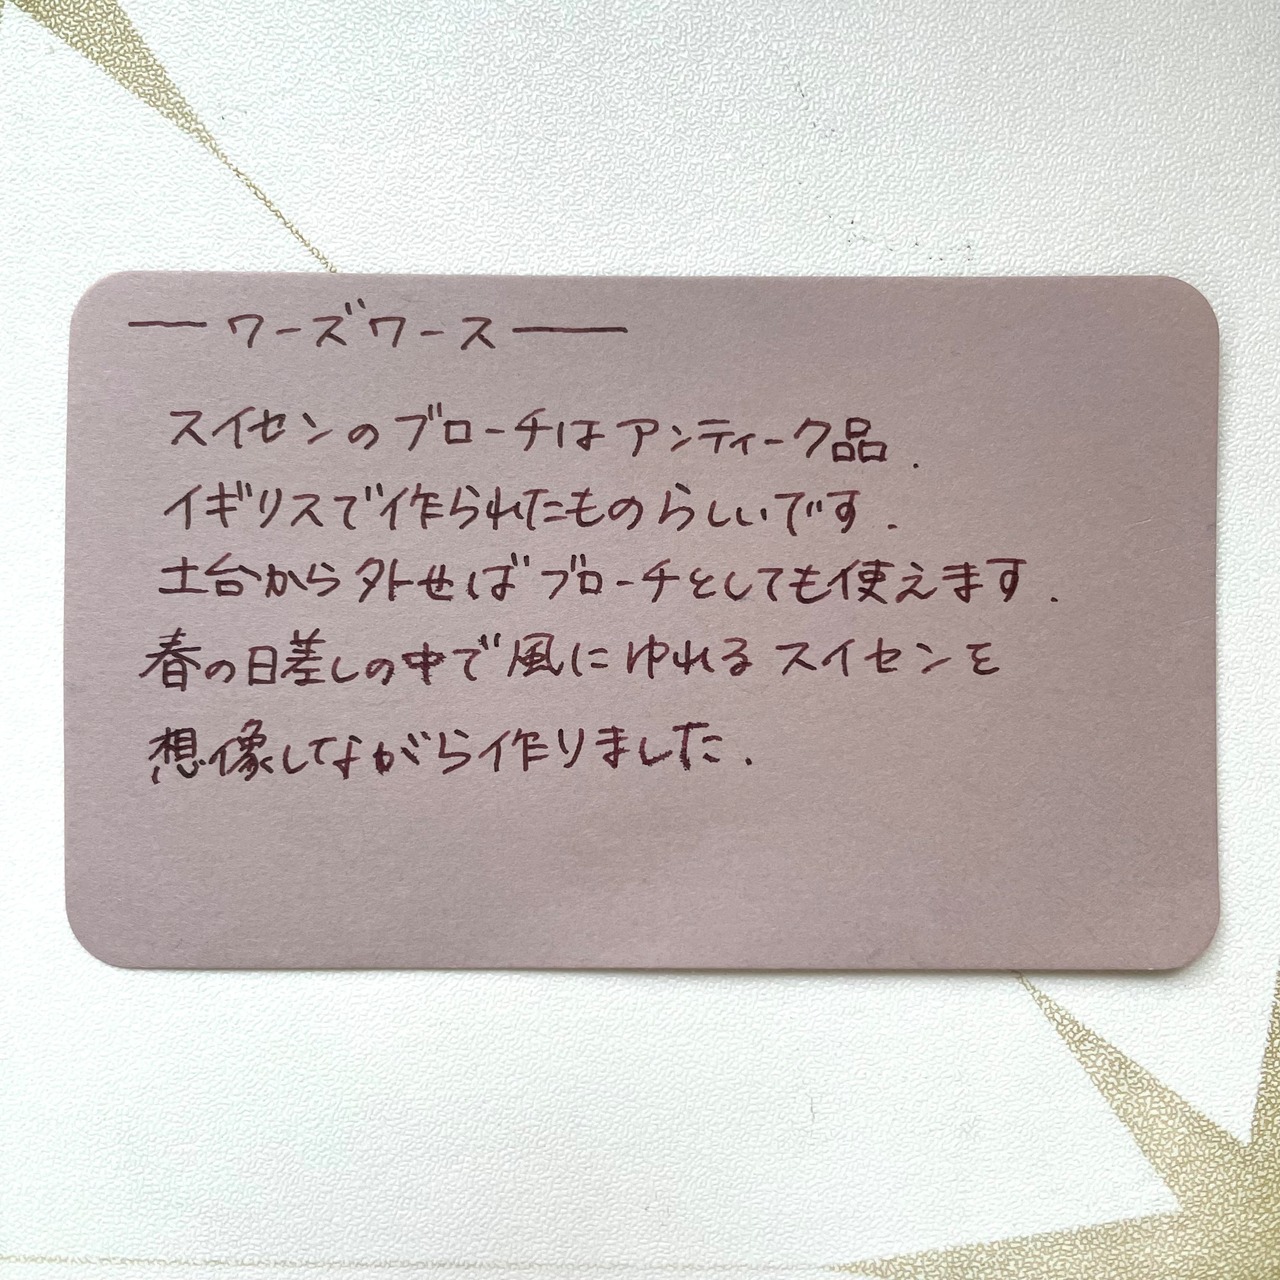 ── ワーズワース ───
スイセンのブローチはアンティーク品.
イギリスで作られたものらしいです.
土台から外せばブローチとしても使えます.
春の日差しの中で風にゆれるスイセンを
想像しながら作りました.